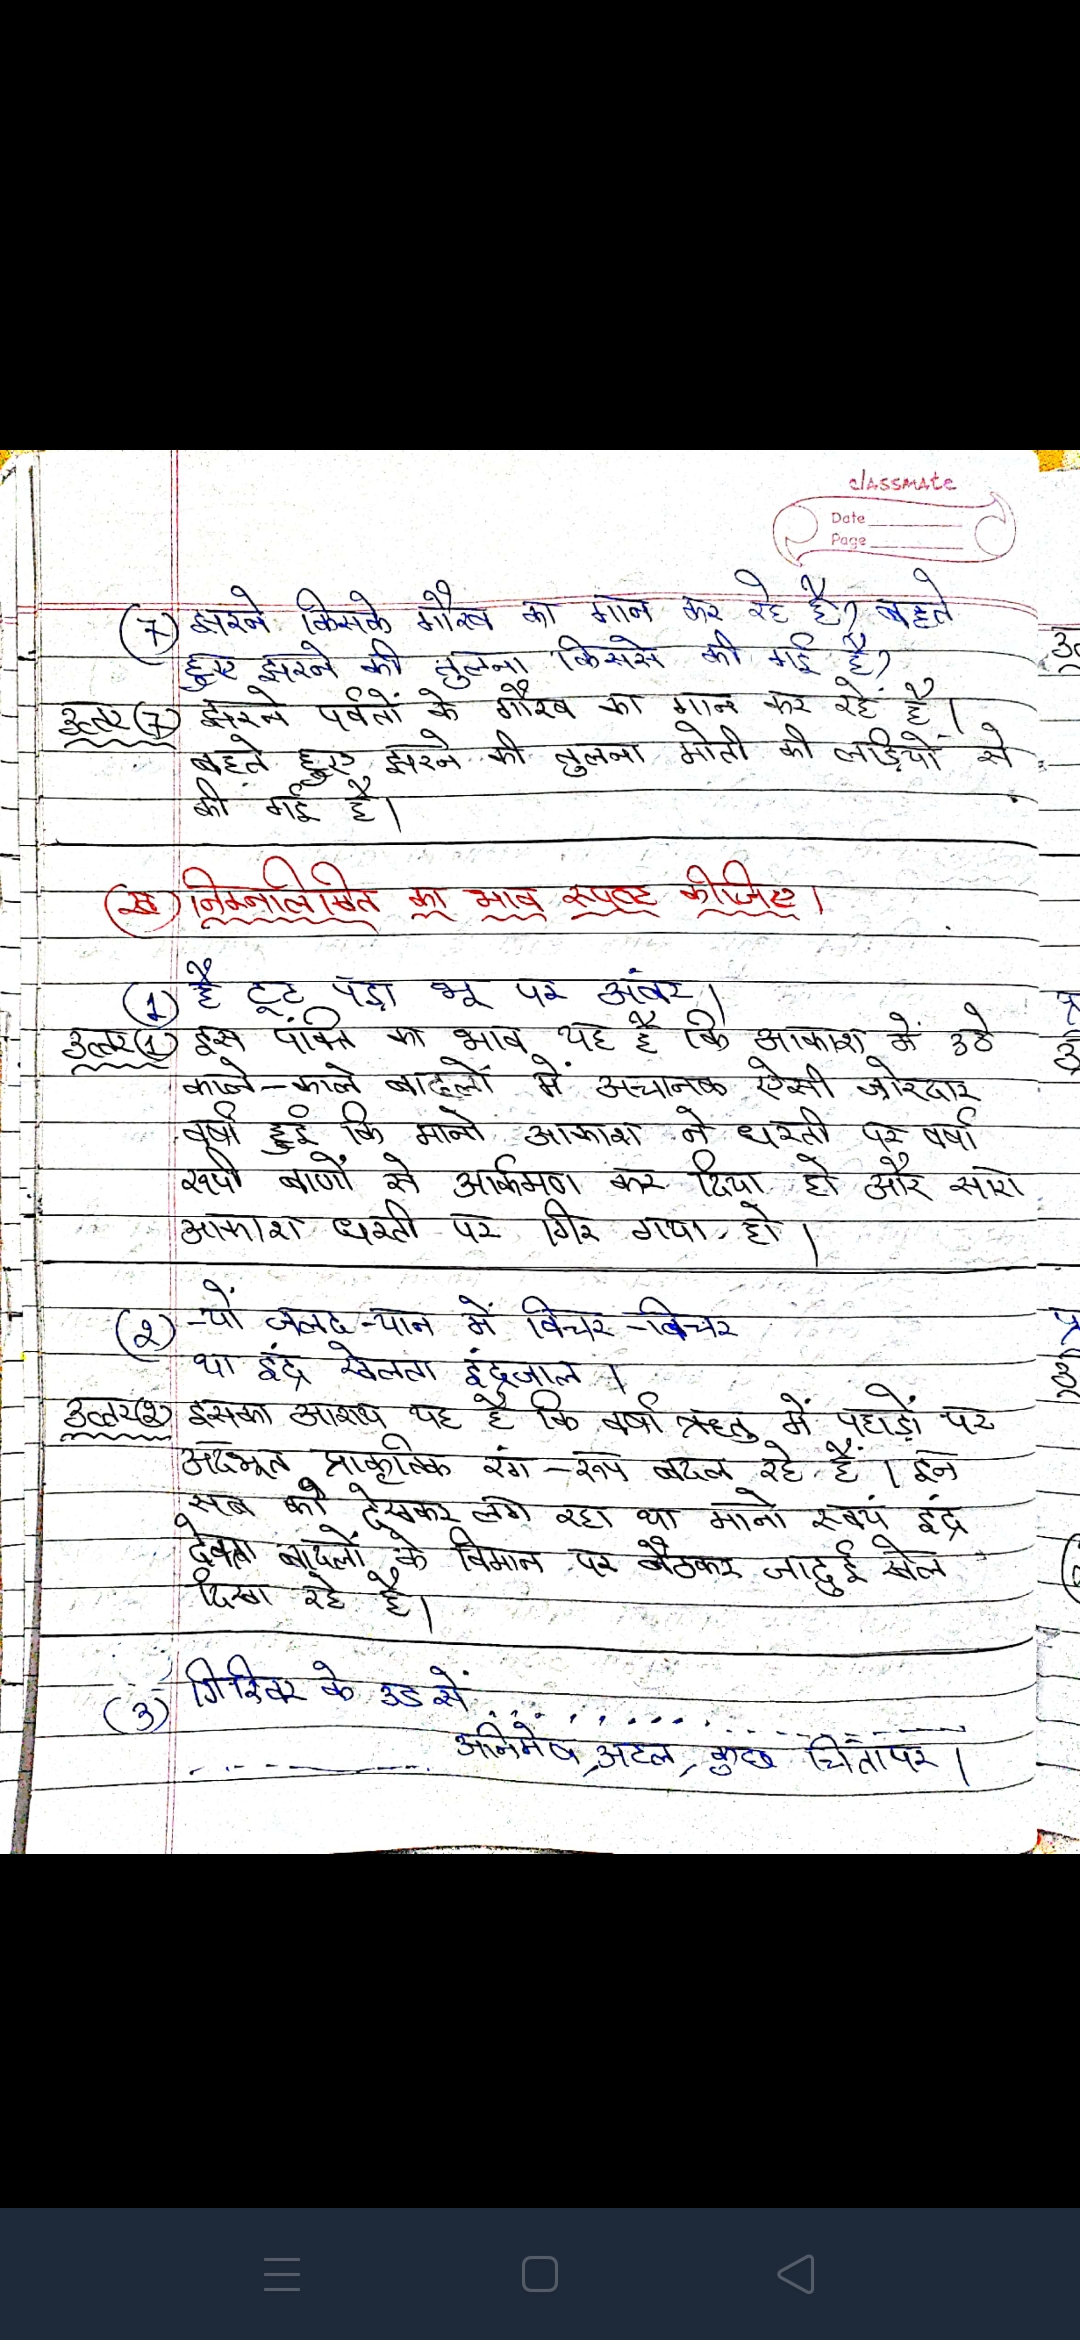 classmate
Date
Page
(7) झरने किसके गौरव का गान कर रहे है? बहते
हुए झरने की तुलना किससे की गई है?
उत्तर(7) झरने पर्वतों के गौरव का गान कर रहें है।
बहते हुए झरने की तुलना मोती की लड़ियों से
की गई है।
(ख) निम्नलिखित का भाव स्पष्ट कीजिए।
(1) है टूट पड़ा भू पर अंबर।
उत्तर(1) इस पंक्ति का भाव यह है कि आकाश में उठे
काले-काले बादलों में अचानक ऐसी जोरदार
वर्षा हुई कि मानो आकाश ने धरती पर वर्षा
रूपी बाणों से आर्कमण कर दिया हो और सारा
आकाश धरती पर गिर गया हो।
(२) -यों जलद-यान में विचर-विचर
था इंद्र खेलता इंद्रजाल।
उत्तर(2) इसका आशय यह है कि वर्षा ऋतु में पहाड़ों पर
अदभूत प्राकृतिक रंग-रूप बदल रहे हैं। इन
सब को देखकर लग रहा था मानो स्वयं इंद्र
देवता बादलों के विमान पर बैठकर जादुई खेल
दिखा रहे है।
(3) गिरिवर के उड से
अनिमेष, अटल, कुछ चिंतापर।